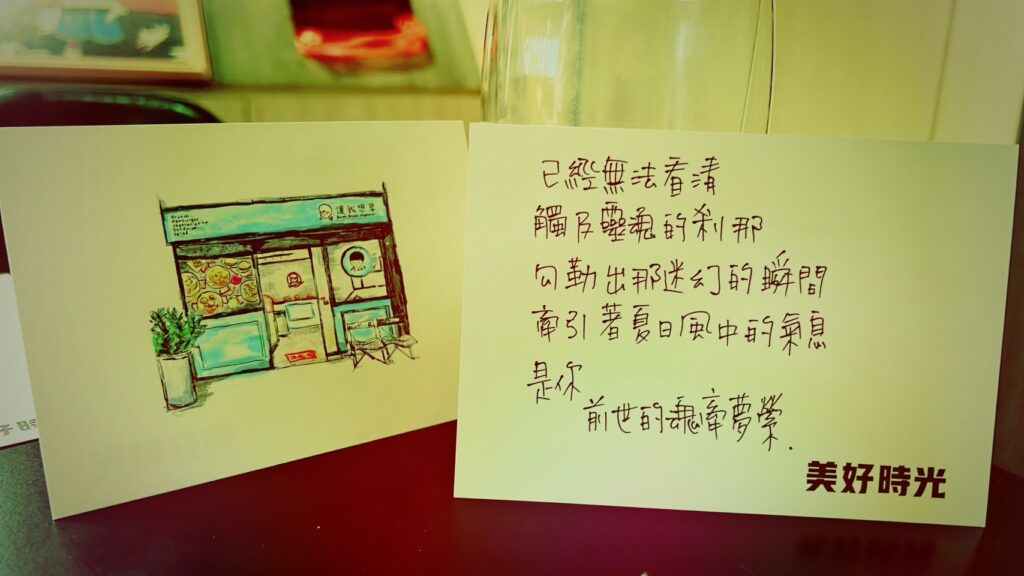 讓我想享
已經無法看清
觸及靈魂的剎那
勾勒出那迷幻的瞬間
牽引著夏日風中的氣息
是你
前世的魂牽夢縈.
美好時光